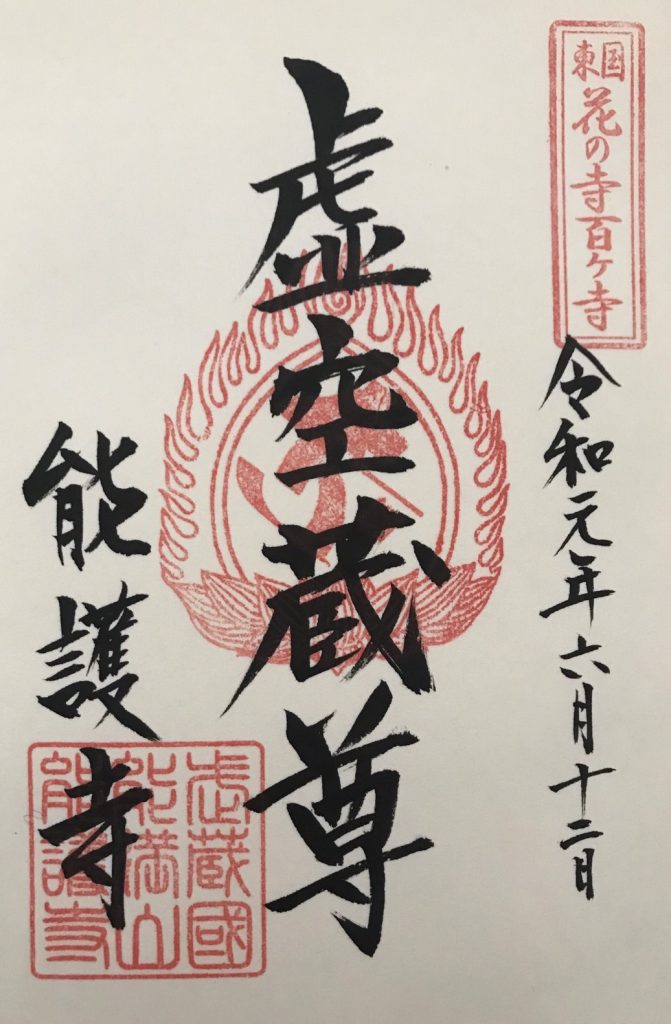 東国花の寺百ヶ寺
令和元年六月十二日
虚空蔵尊
能護寺
武蔵國
能満山
能護寺